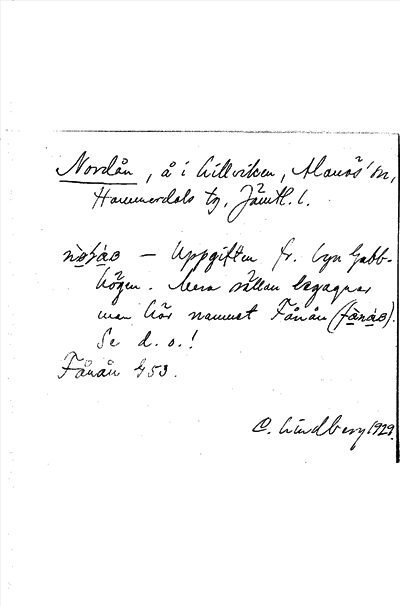 Nordån, å i Lillviken, Alanäs' sn,
Hammerdals tg, Jämtl. l.
— Uppgiften fr. byn Gubb-
högen. Mera sällan begagnas
man här namnet Fånån
Se d. o.!
Fånån G53.
C. Lindberg 1929.